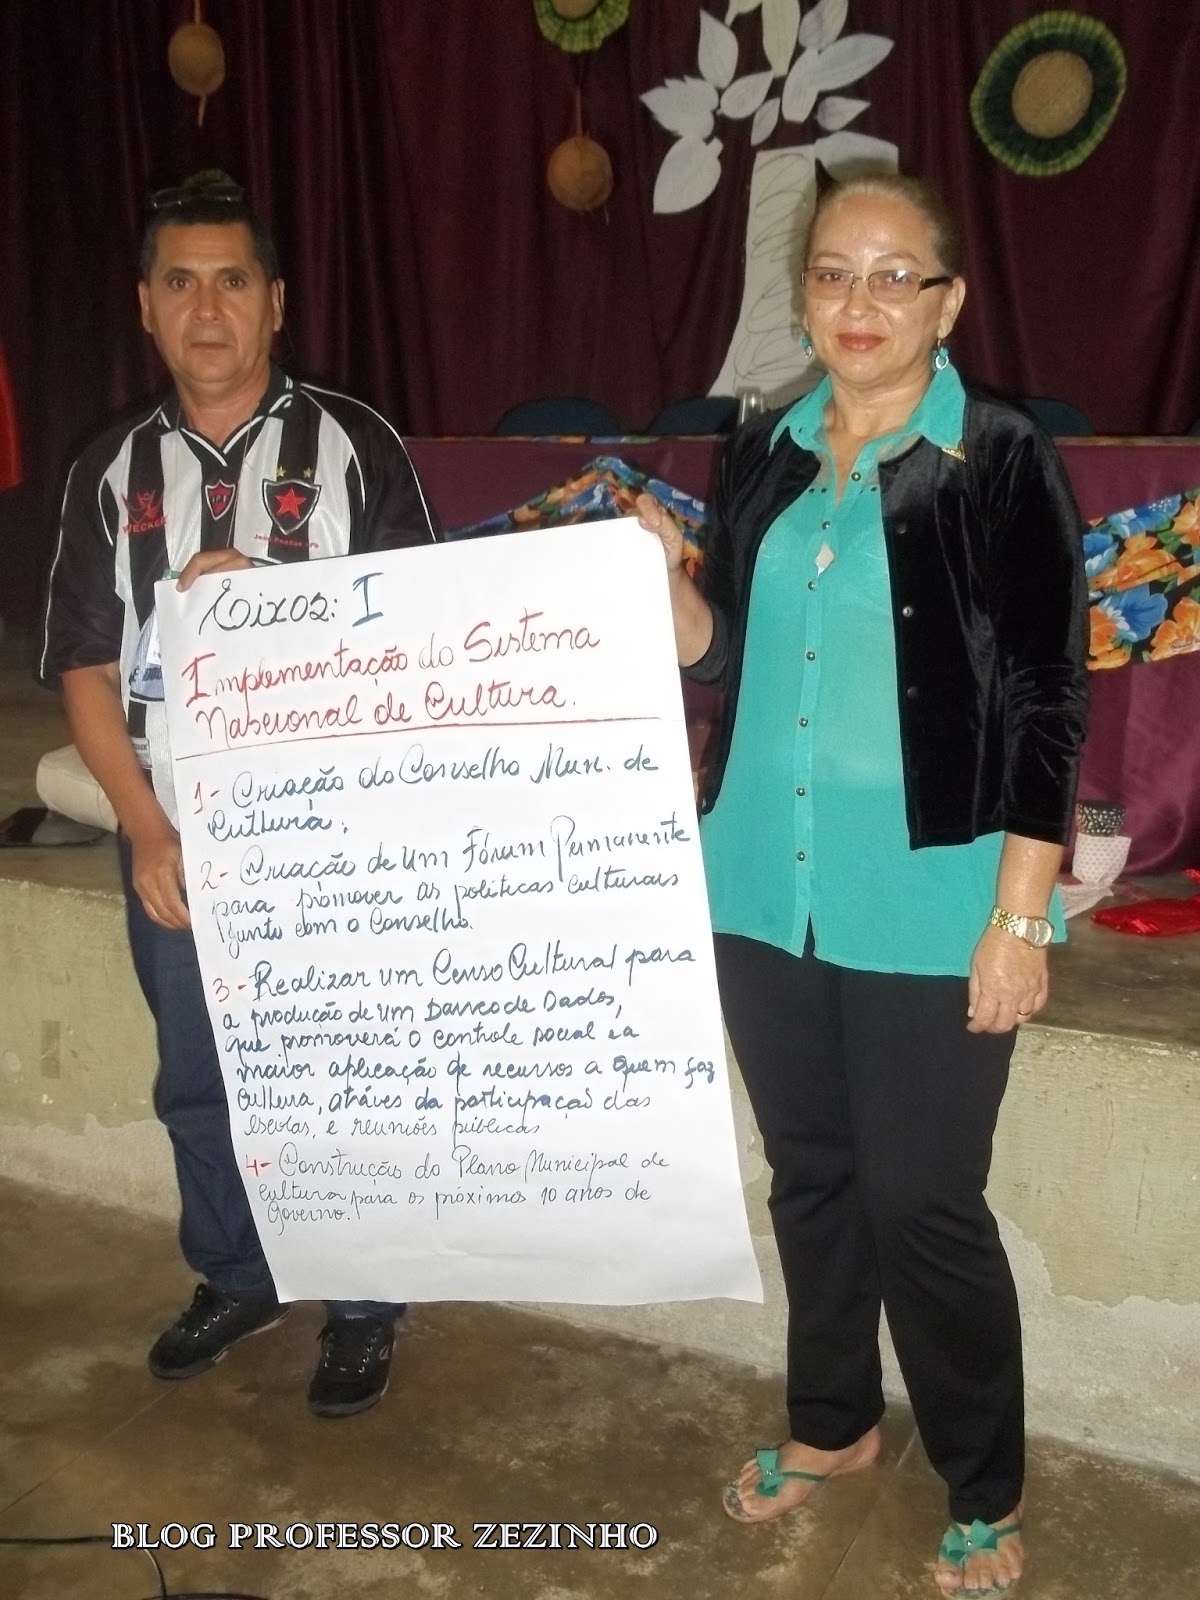 Eixos: I
Implementação do Sistema
Nascional de Cultura.
1- Criação do Conselho Mun. de
Cultura.
2- Criação de um Fórum Permanente
para promover as politicas culturais
junto com o Conselho.
3- Realizar um Censo Cultural para
a produção de um Banco de Dados,
que promoverá o controle social e a
maior aplicação de recursos a quem faz
Cultura, atráves da participação das
escolas, e reuniões públicas
4- Construção do Plano Municipal de
Cultura para os próximos 10 anos de
Governo.
BLOG PROFESSOR ZEZINHO